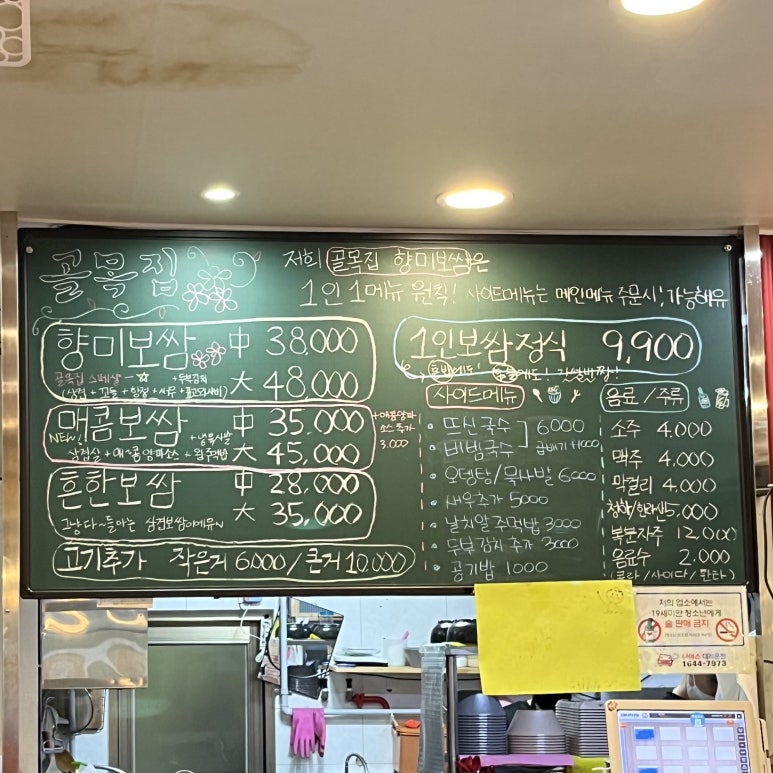 골목집
저희 골목집 향미보쌈은
1인 1메뉴 원칙! 사이드메뉴는 메인메뉴 주문시! 가능해유
향미보쌈 中 38,000
골목집 스페샬 + 두부김치
大 48,000
매콤보쌈 中 35,000
NEW! + 냉묵사발
삼겹살 + 매콤양파소스 + 왕주먹밥 大 45,000
+매콤양파
소스 추가
3,000
흔한보쌈 中 28,000
大 35,000
그냥 다~ 들아는 삼겹보쌈이에유~
고기추가 작은거 6,000 / 큰거 10,000
1인보쌈정식 9,900
혼밥에도!
사이드메뉴
따신국수
비빔국수 6000
곱배기 +1000
오뎅탕/묵사발 6000
새우추가 5000
날치알주먹밥 3000
두부김치 추가 3000
공기밥 1000
음료 / 주류
소주 4,000
맥주 4,000
막걸리 4,000
청하/한라산 5,000
복분자주 12,000
음료수 2,000
(콜라 / 사이다 / 환타)
저희 업소에서는
19세미만 청소년에게
술 판매 금지
나이스 대리운전
1644-7973